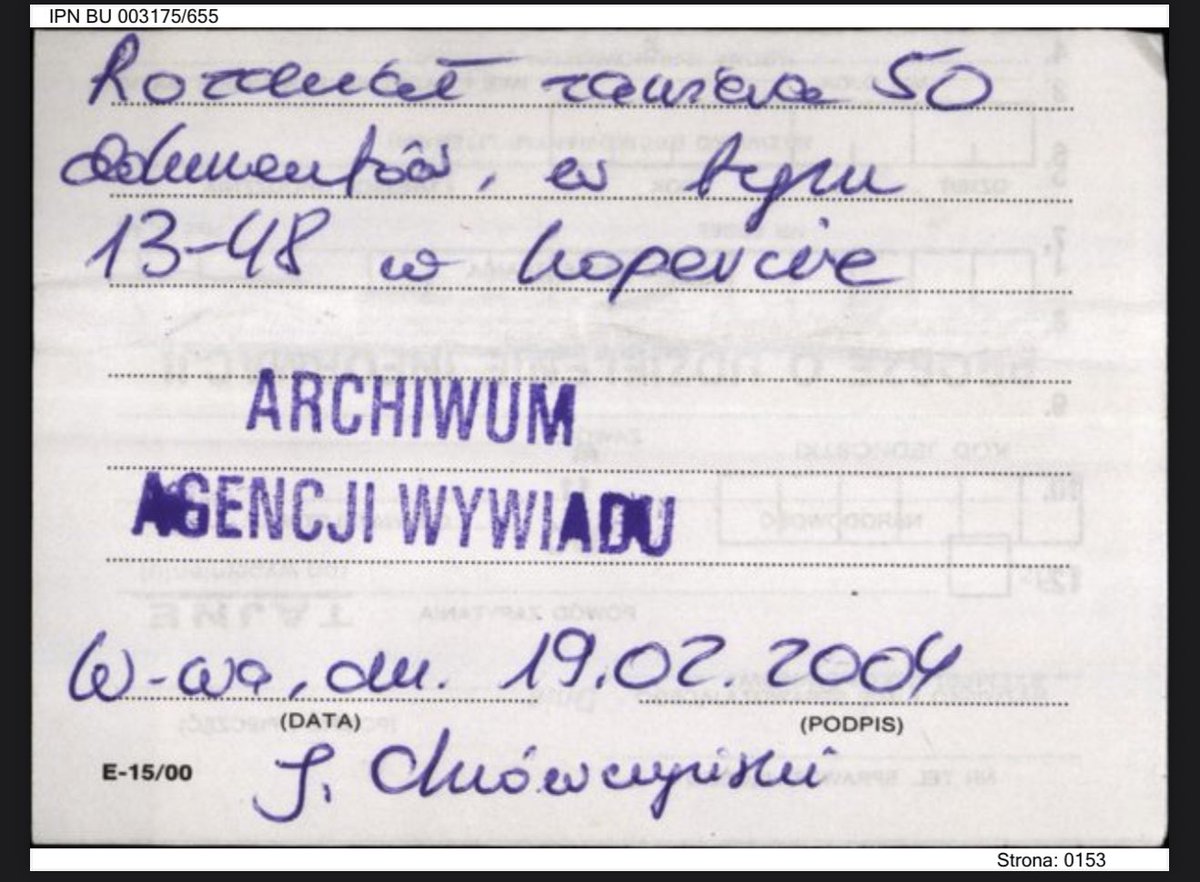 IPN BU 003175/655
Rozdział zawiera 50
dokumentów, w tym
13-48 w kopercie
ARCHIWUM
AGENCJI WYWIADU
W-wa, dn. 19.02.2004
(DATA) (PODPIS)
E-15/00 J.
Strona: 0153